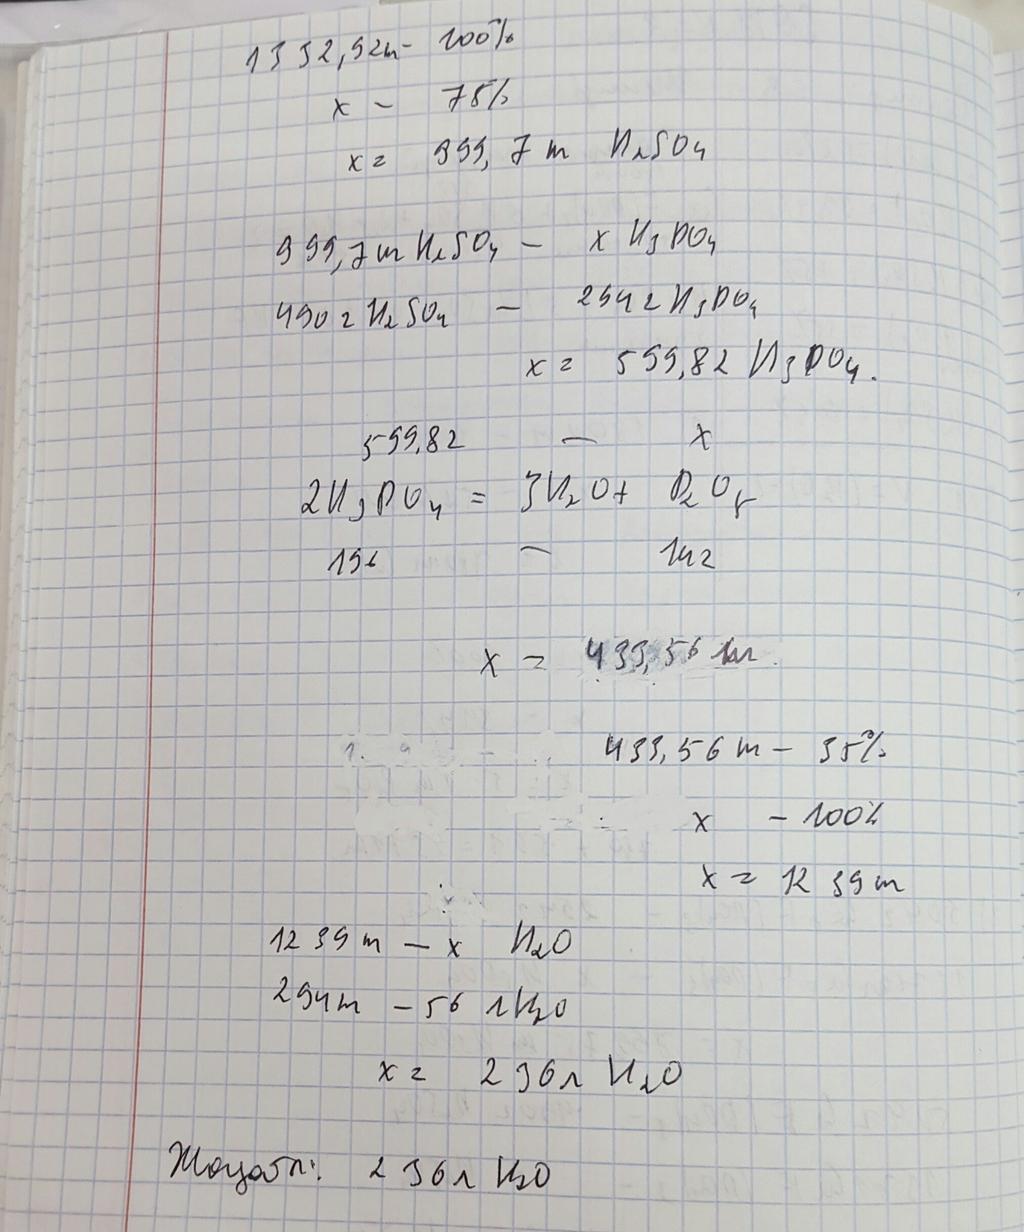 1332,92т - 100%
x - 75%
x = 999,7 т H₂SO₄
999,7 т H₂SO₄ - x H₃PO₄
490 г H₂SO₄ - 294 г H₃PO₄
x = 599,82 H₃PO₄.
599,82 - x
2H₃PO₄ = 3H₂O + P₂O₅
196 - 142
x = 433,56
433,56 т - 35%
x - 100%
x = 1239 т
1239 т - x H₂O
294 т - 56 л H₂O
x = 236 л H₂O
Жауап: 236 л H₂O